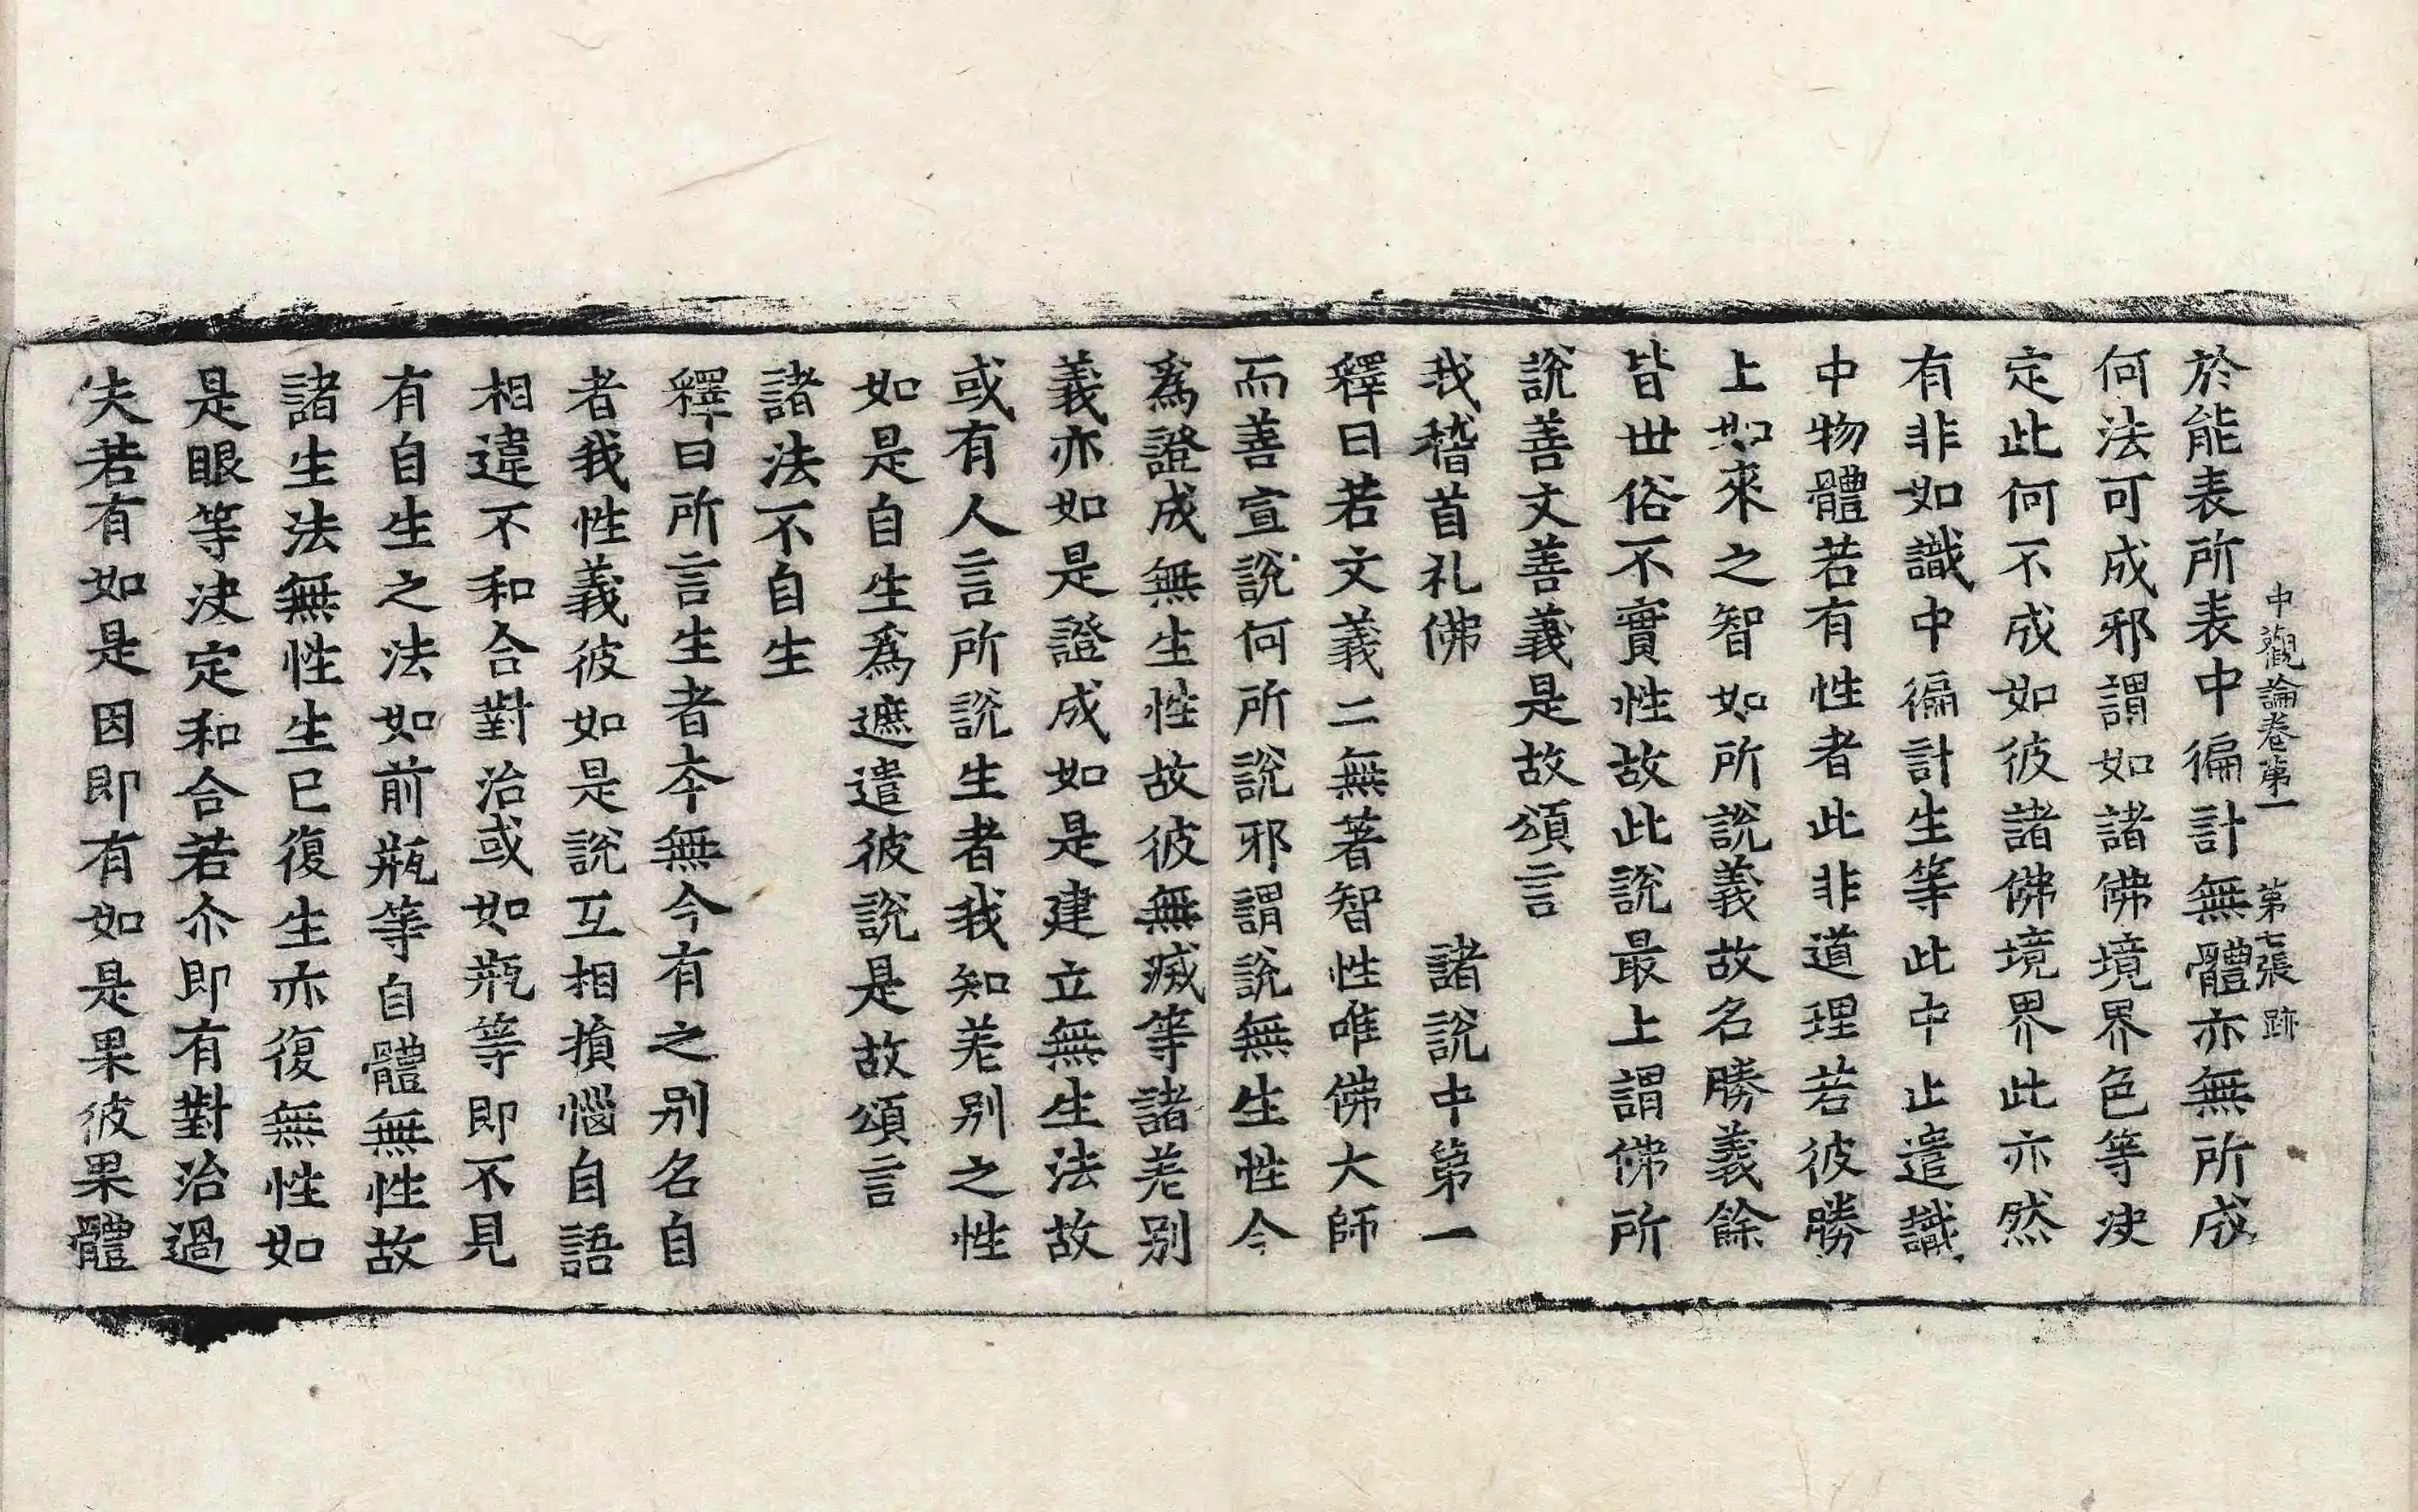 中觀論卷第一　第七張　跡
於能表所表中徧計無體亦無所成
何法可成邪謂如諸佛境界色等决
定此何不成如彼諸佛境界此亦然
有非如識中徧計生等此中止遣識
中物體若有性者此非道理若彼勝
上如來之智如所說義故名勝義餘
皆世俗不實性故此說最上謂佛所
說善文善義是故頌言
我稽首礼佛　　　　諸說中第一
釋曰若文義二無著智性唯佛大師
而善宣說何所說邪謂說無生性今
爲證成無生性故彼無滅等諸差别
義亦如是證成如是建立無生法故
或有人言所說生者我知差别之性
如是自生爲遮遣彼說是故頌言
諸法不自生
釋曰所言生者本無今有之别名自
者我性義彼如是說互相損惱自語
相違不和合對治或如瓶等即不見
有自生之法如前瓶等自體無性故
諸生法無性生已復生亦復無性如
是眼等決定和合若尒即有對治過
失若有如是因即有如是果彼果體